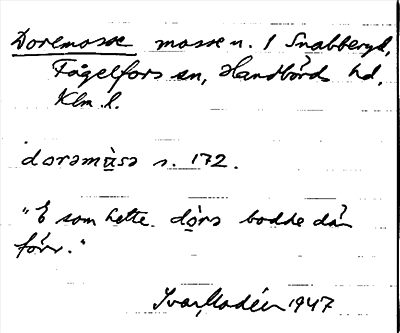 Doremosse mosse n. 1 Snabberyd,
Fågelfors sn, Handbörds hd,
Klm. l.
dorəmùsə s. 172.
"E som hette dòrə bodde där
förr."
Ivar Modéer 1947